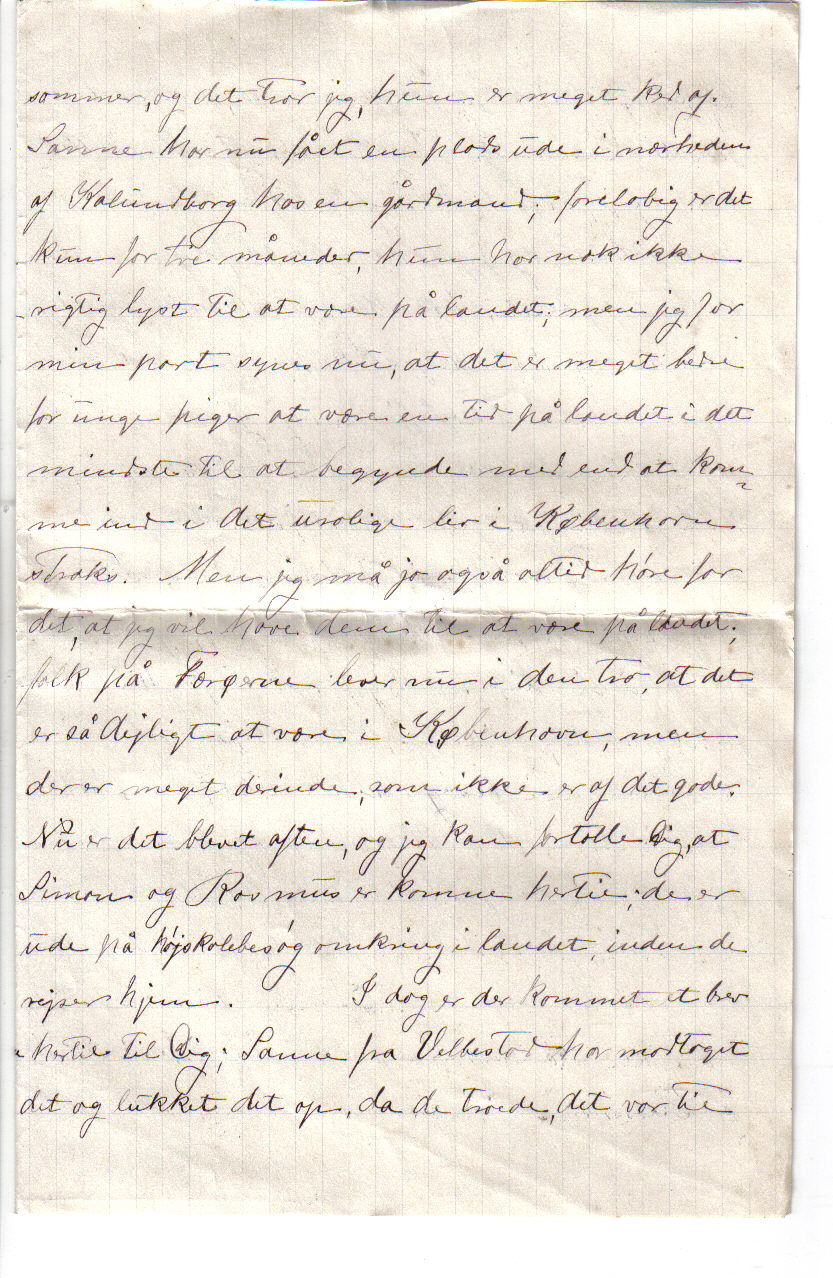 sommer, og det tror jeg, hun er meget ked af.
Sanne har nu fået en plads ude i nærheden
af Kalundborg hos en gårdmand; foreløbig er det
kun for tre måneder, hun har nok ikke
rigtig lyst til at være på landet; men jeg for
min part synes nu, at det er meget bedre
for unge piger at være en tid på landet i det
mindste til at begynde med end at kom-
me ind i det urolige liv i København
straks. Men jeg må jo også altid høre for
det, at jeg vil have dem til at være på landet;
folk på Færøerne lever nu i den tro, at det
er så dejligt at være i København, men
der er meget derinde, som ikke er af det gode.
Nu er det blevet aften, og jeg kan fortælle Dig, at
Simon og Rasmus er komne hertil; de er
ude på højskolebesøg omkring i landet, inden de
rejser hjem. I dag er der kommet et brev
hertil til Dig; Sanne fra Velbestad har modtaget
det og lukket det op, da de troede, det var til